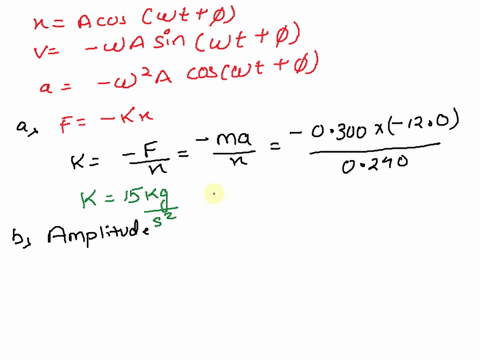 x = A cos (ωt + φ)
v = -ωA sin (ωt + φ)
a = -ω²A cos(ωt + φ)
a, F = -Kx
K = -F/x = -ma/x = -0.300 x (-12.0)/0.240
K = 15 Kg/s²
b, Amplitude